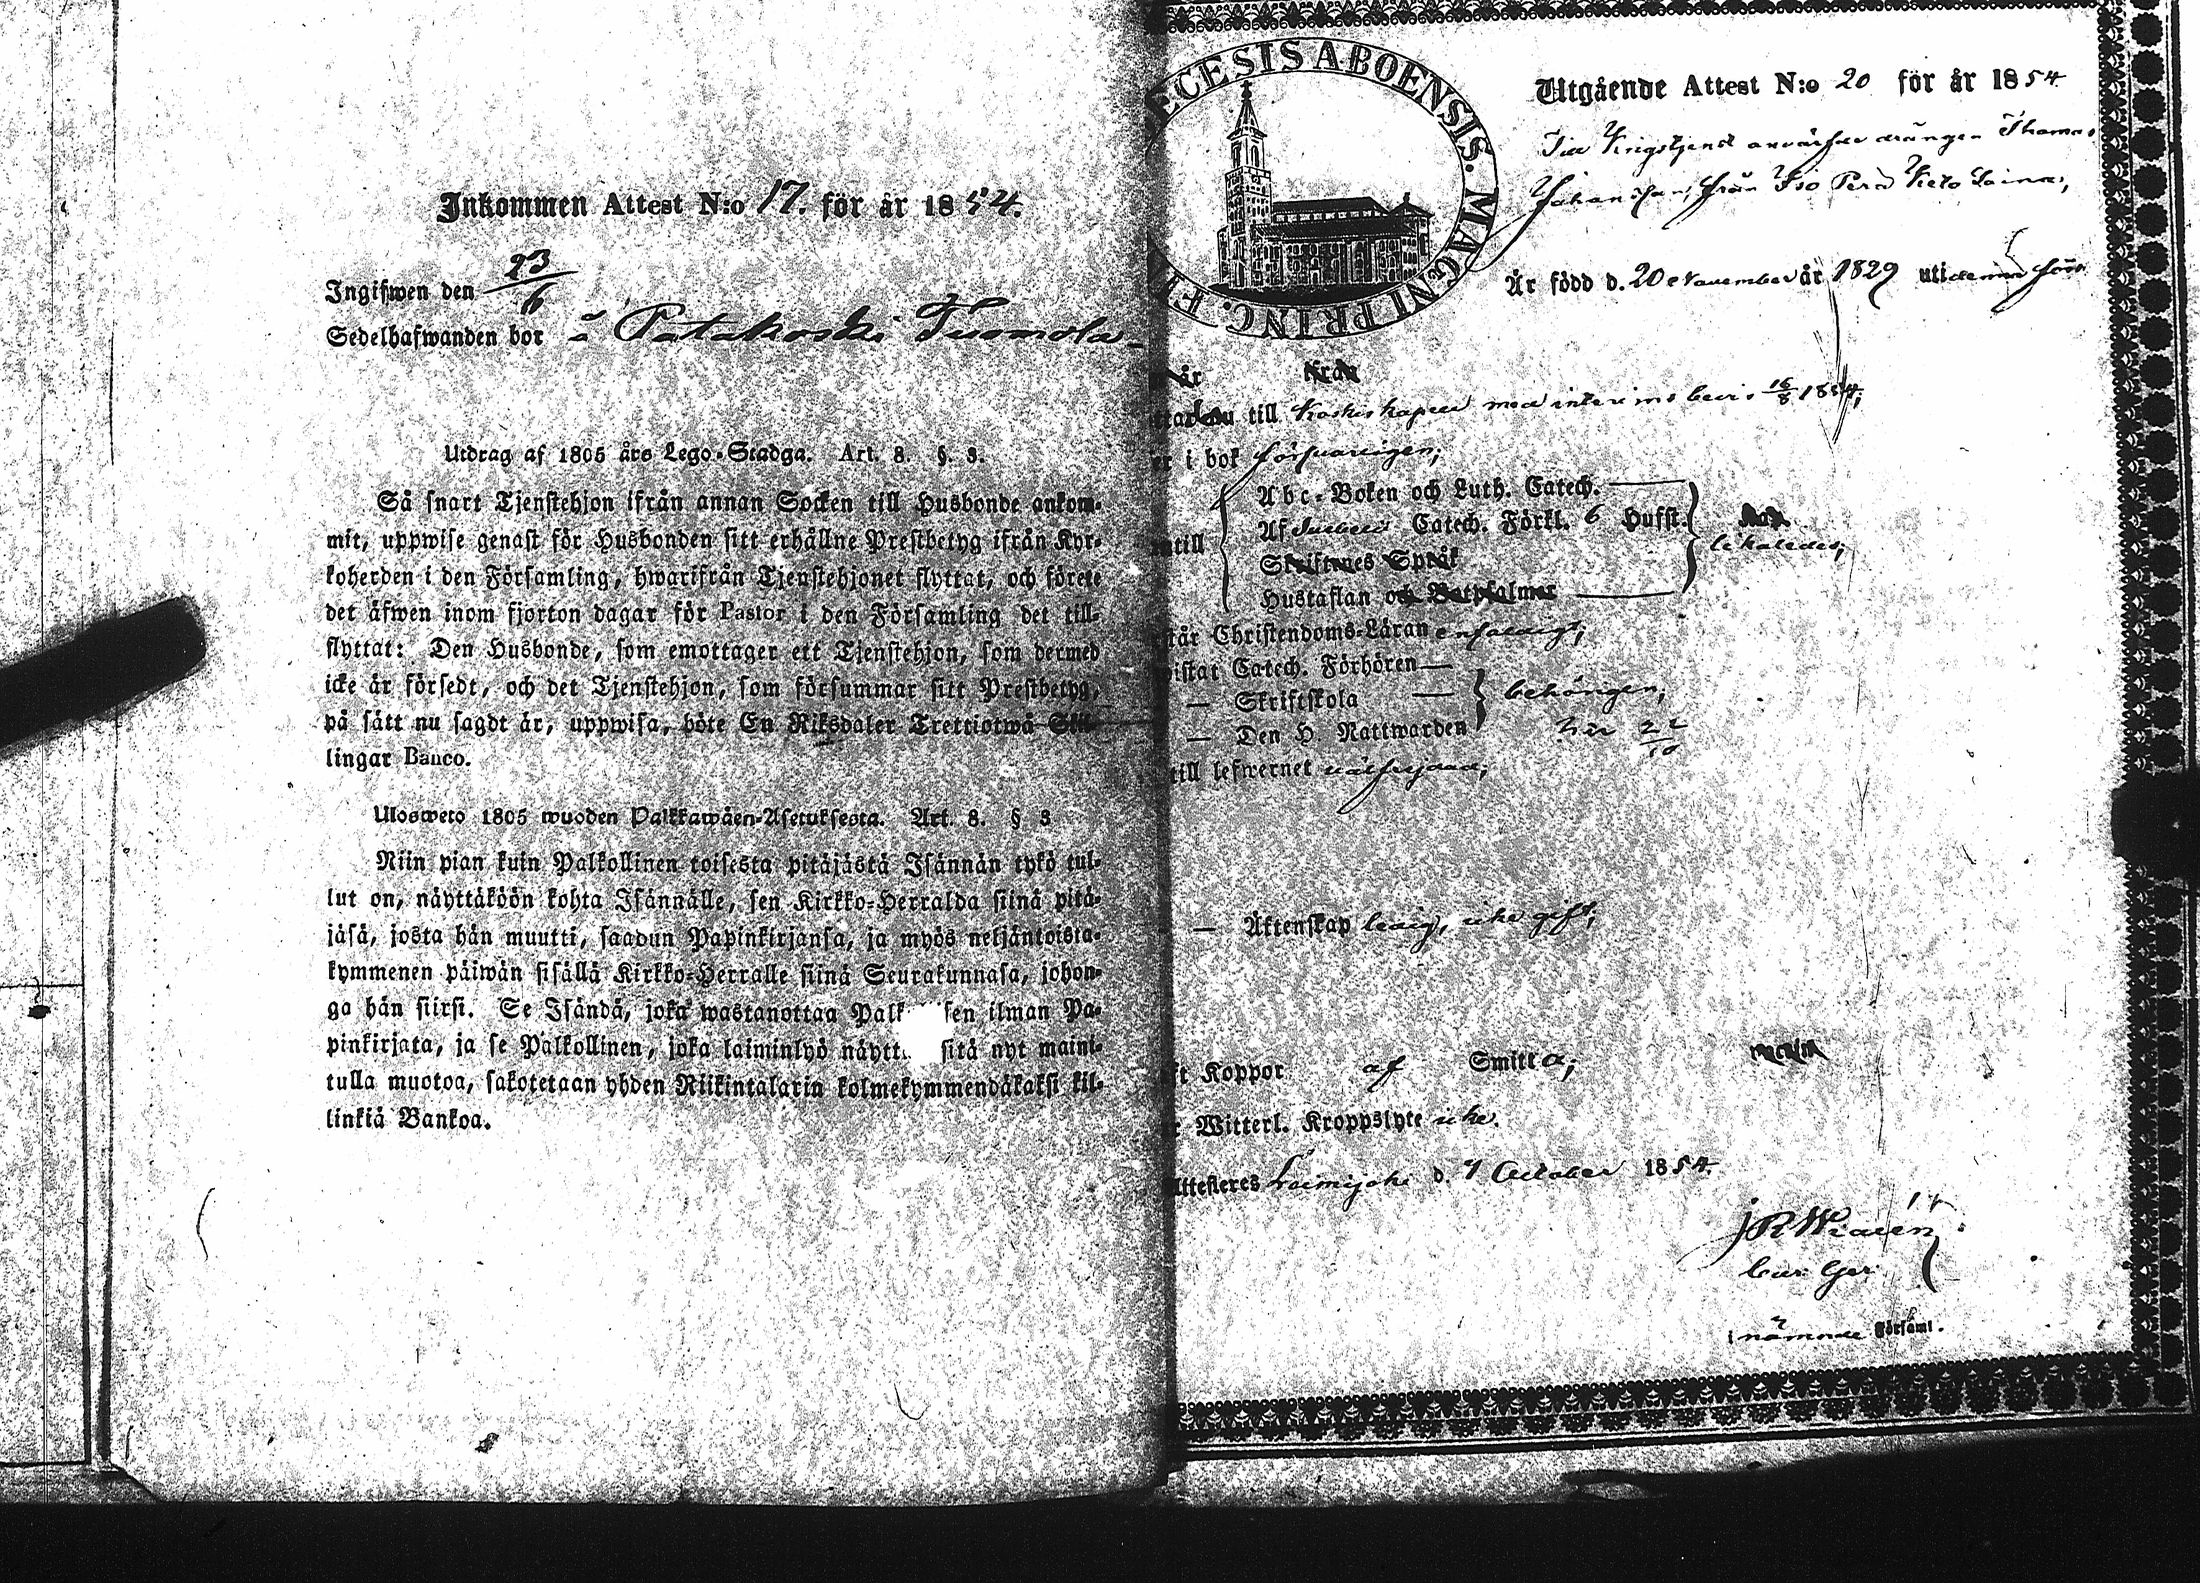 Inkommen Attest N:o 17. för år 1854.
Ingifwen den 23/6
Sedelhafwanden bor å Patakoski Tuomola
Utdrag af 1805 års Lego-Stadga. Art. 8. §. 3.
Så snart Tjenstehjon ifrån annan Socken till Husbonde ankom-
mit, uppwise genast för Husbonden sitt erhållne Prestbetyg ifrån Kyr-
koherden i den Församling, hwarifrån Tjenstehjonet flyttat, och förete
det äfwen inom fjorton dagar för Pastor i den Församling det till-
flyttat: Den Husbonde, som emottager ett Tjenstehjon, som dermed
icke är försedt, och det Tjenstehjon, som försummar sitt Prestbetyg,
på sätt nu sagdt är, uppwisa, böte En Riksdaler Trettiotwå Skil-
lingar Banco.
Ulosweto 1805 wuoden Palkkawäen-Asetuksesta. Art. 8. § 3
Niin pian kuin Palkollinen toisesta pitäjästä Isännän tykö tul-
lut on, näyttäköön kohta Isännälle, sen Kirkko-Herralda siinä pitä-
jäsä, josta hän muutti, saadun Papinkirjansa, ja myös neljäntoista-
kymmenen päiwän sisällä Kirkko-Herralle siinä Seurakunnasa, johon-
ga hän siirsi. Se Isändä, joka wastanottaa Palk sen ilman Pa-
pinkirjata, ja se Palkollinen, joka laiminlyö näytt sitä nyt maini-
tulla muotoa, sakotetaan yhden Riikintalarin kolmekymmendäkaksi kil-
linkiä Bankoa.
ECESIS ABOENSIS. MAGNI PRINC. FI
Utgående Attest N:o 20 för år 1854
Till Krigstjenst drängen Thomas
Johansson, från Iso Perä
Är född d. 20 November år 1829 uti denna förs.
år från
till Koskis kapell med interims bevis 16/8 1854;
i bok försvarligen;
Abc-Boken och Luth. Catech.
Af Svebelii Catech. Förkl. 6 Hufst.
ntill
Skriftenes Språk
Hustaflan och Botpsalmer
står Christendoms-Läran enfaldigt;
vistat Catech. Förhören
— Skriftskola — behörigen,
— Den H. Nattwarden
till lefwernet välfrejdad;
— Äktenskap ledig, icke gift;
ft Koppor af Smitta;
r Witterl. Kroppslyte icke.
Attesteres Loimijoki d. 4 October 1854.
i nämnde Församl.